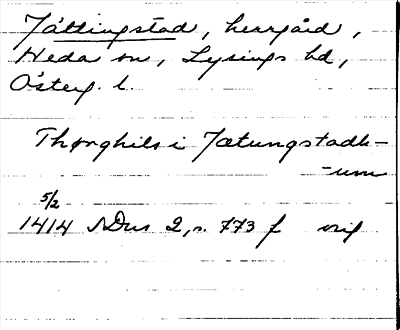 Jättingstad, herrgård,
Heda sn, Lysings hd,
Österg. l.
Thorghils i Jætungstadh-
-um
5/2
1414 SDns 2, s. 773 f